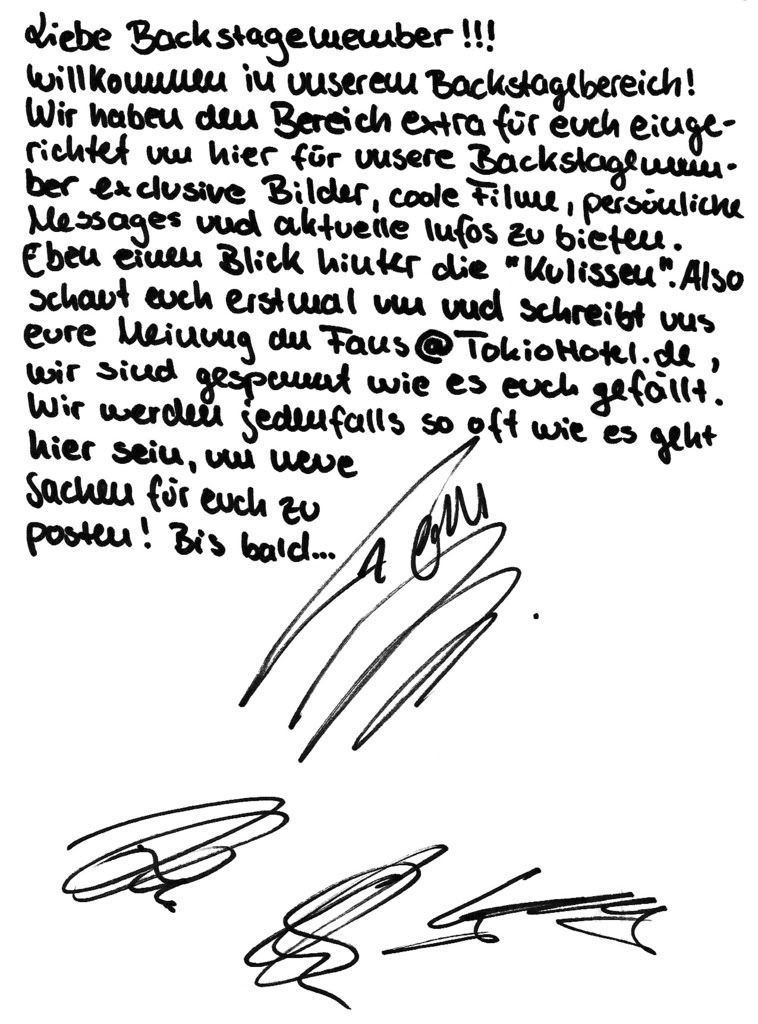 Liebe Backstagemember!!!
Willkommen in unserem Backstagebereich!
Wir haben den Bereich extra für euch einge-
richtet um hier für unsere Backstagemem-
ber exclusive Bilder, coole Filme, persönliche
Messages und aktuelle Infos zu bieten.
Eben einen Blick hinter die "Kulissen". Also
schaut euch erstmal um und schreibt uns
eure Meinung an Fans@TokioHotel.de,
wir sind gespannt wie es euch gefällt.
Wir werden jedenfalls so oft wie es geht
hier sein, um neue
Sachen für euch zu
posten! Bis bald...